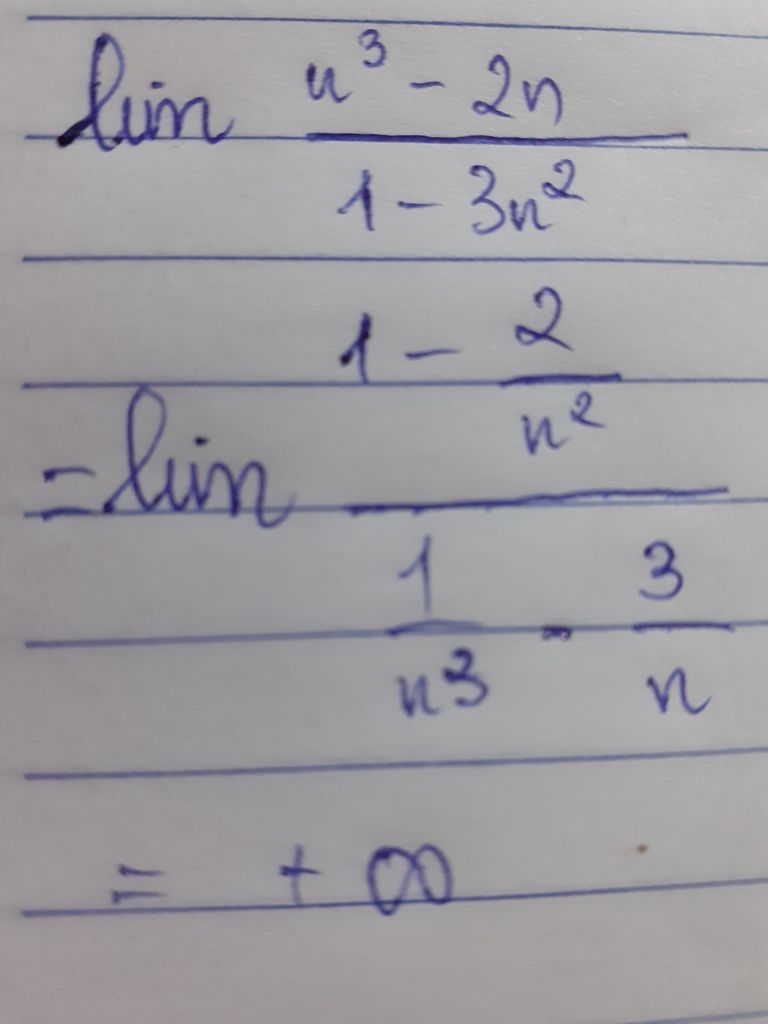 lim \frac{n^3 - 2n}{1 - 3n^2}
= lim \frac{1 - \frac{2}{n^2}}{\frac{1}{n^3} - \frac{3}{n}}
= + ∞